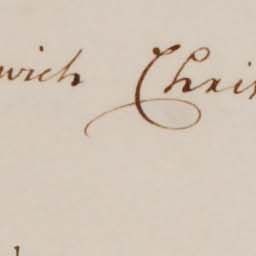 wich Chri